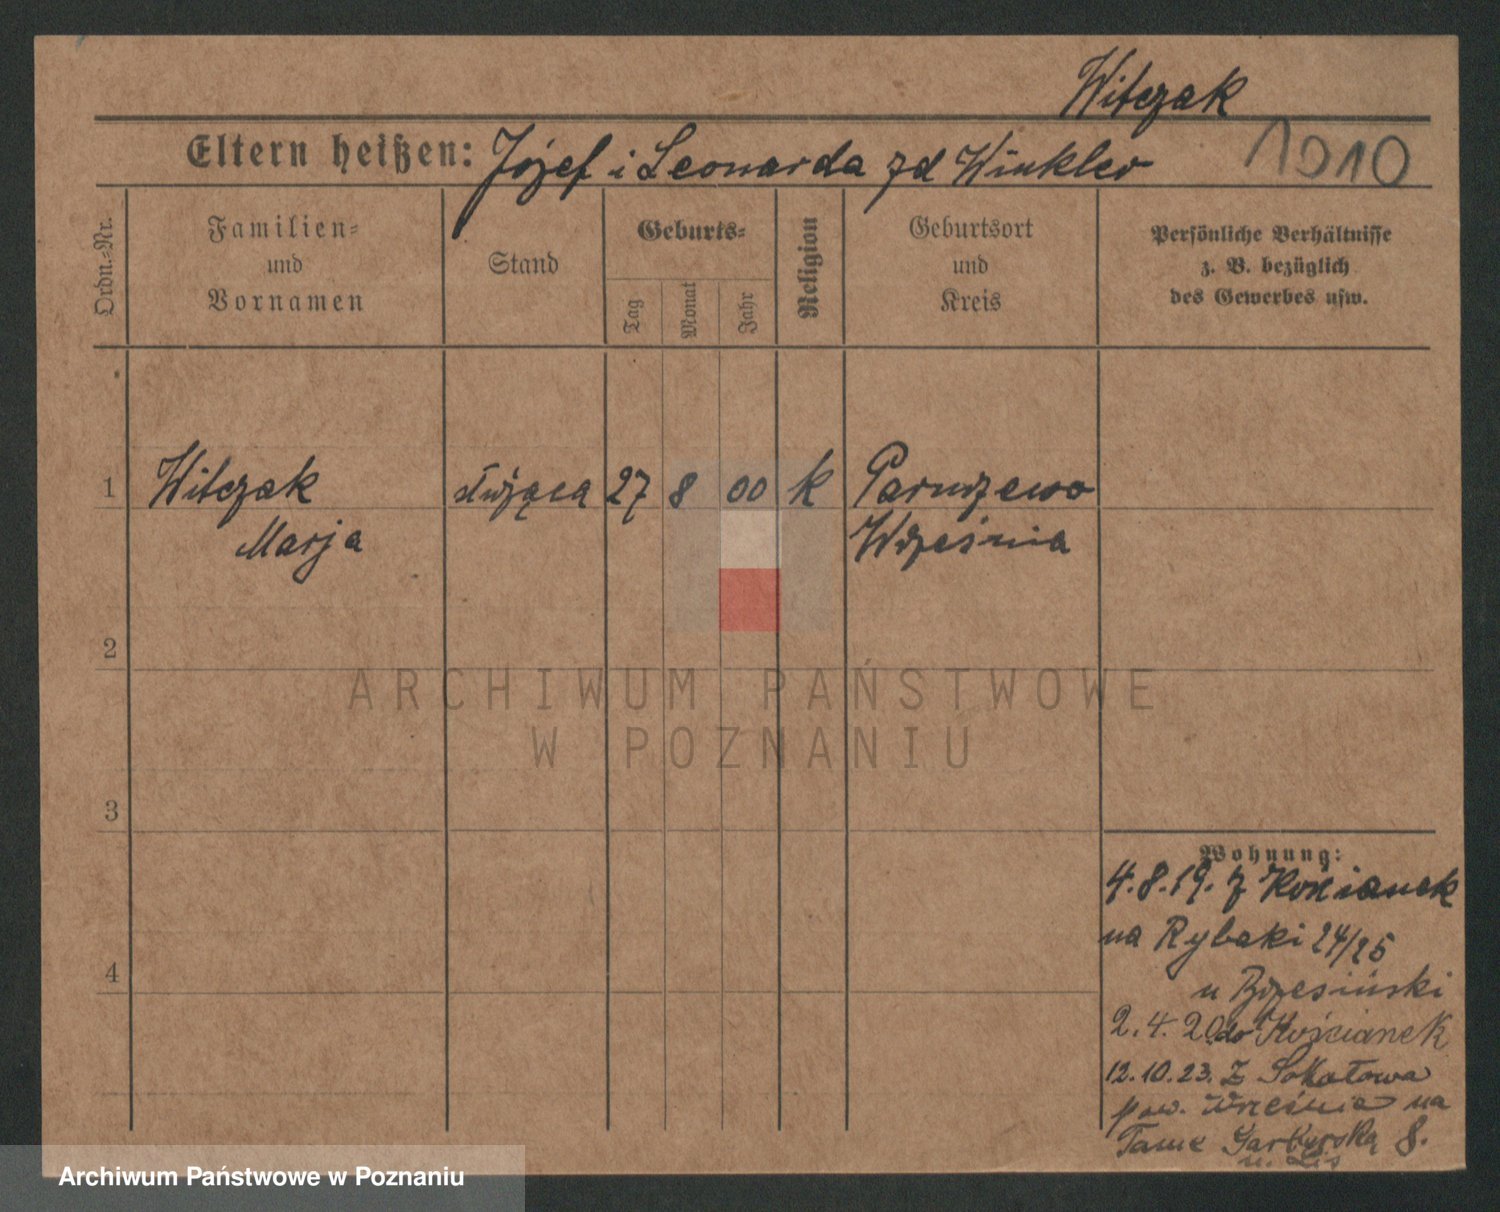 Witczak
Eltern heißen: Józef i Leonarda zd Winkler
1910
Ordn.-Nr.
Familien-
und
Vornamen
Stand
Geburts-
Tag
Monat
Jahr
Religion
Geburtsort
und
Kreis
Persönliche Verhältnisse
z. B. bezüglich
des Gewerbes usw.
1 Witczak służąca 27 8 00 k Paruszewo
Marja Września
2
ARCHIWUM PAŃSTWOWE
W POZNANIU
3
Wohnung:
4.8.19. z Kościanek
na Rybaki 24/25
4
u Brzesiński
2.4.20 do Kościanek
12.10.23. z Sokołowa
pow. Września na
Tamę Garbarską 8.
u. Lis
Archiwum Państwowe w Poznaniu